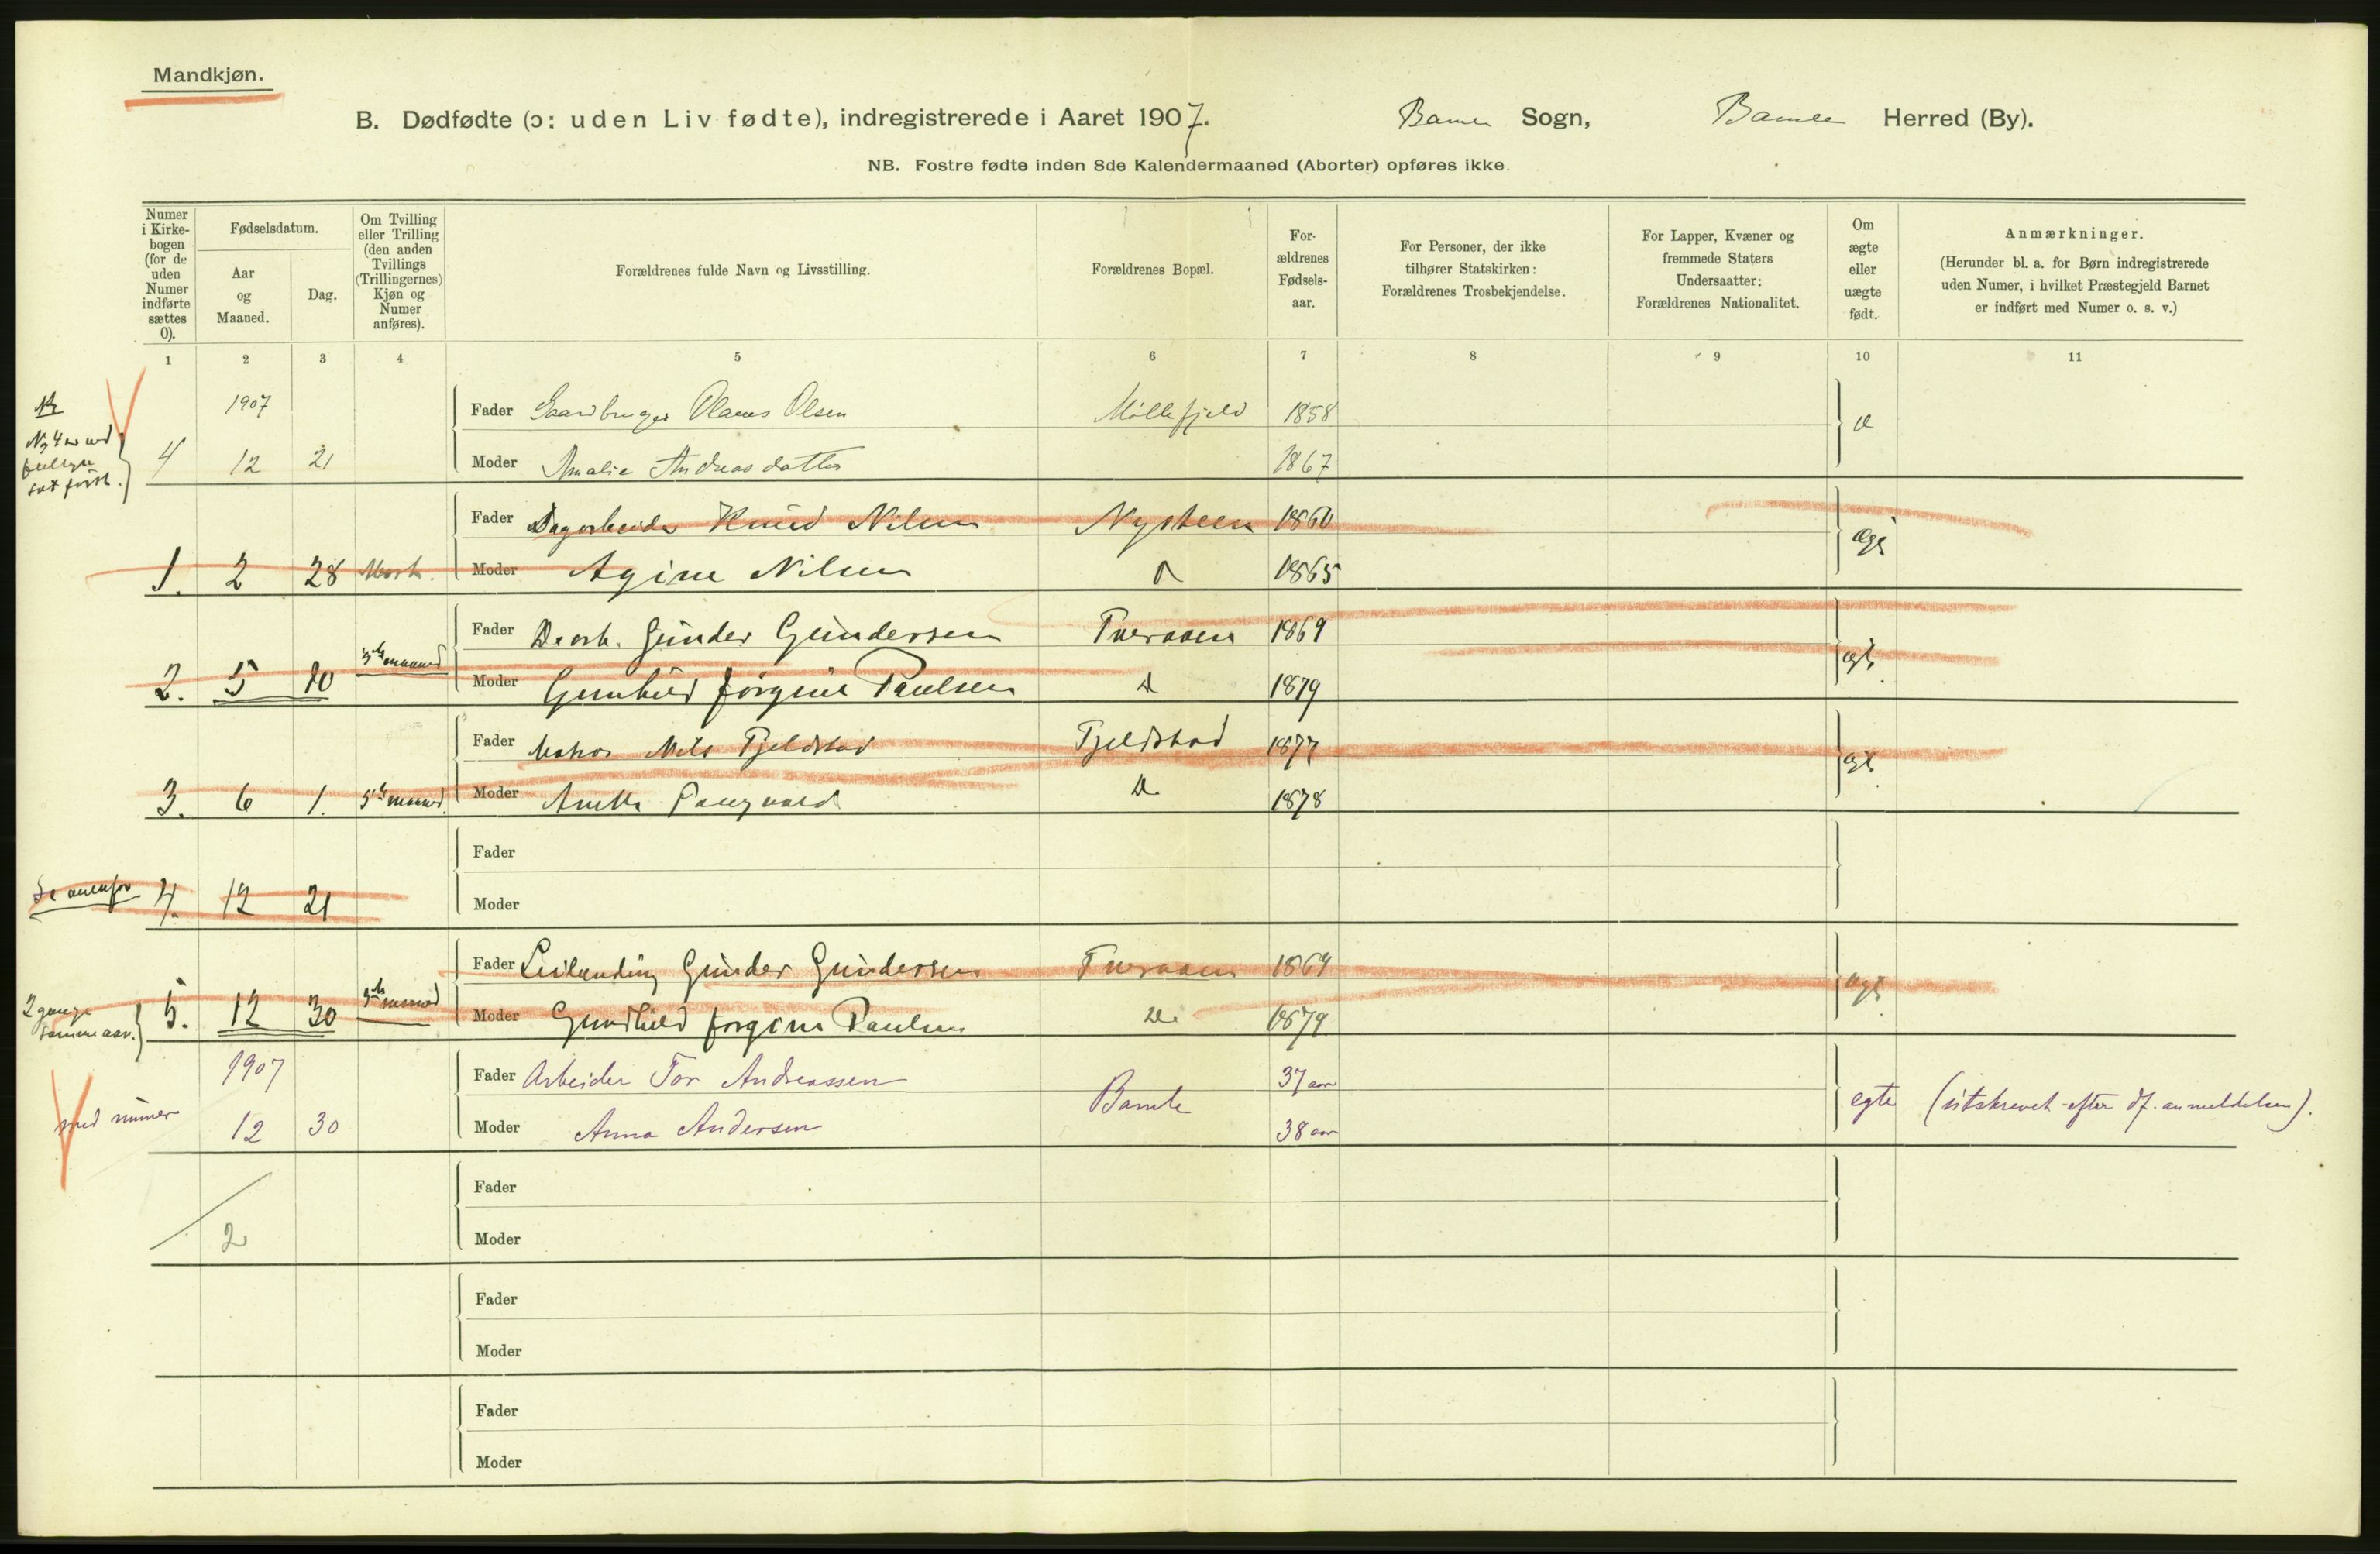 Mandkjøn.
B. Dødfødte (ɔ: uden Liv fødte), indregistrerede i Aaret 1907. Bamle Sogn, Bamle Herred (By).
NB. Fostre fødte inden 8de Kalendermaaned (Aborter) opføres ikke.
Numer i Kirkebogen (for de uden Numer indførte sættes 0).
Fødselsdatum.
Aar og Maaned.
Dag.
Om Tvilling eller Trilling (den anden Tvillings (Trillingernes) Kjøn og Numer anføres).
Forældrenes fulde Navn og Livsstilling.
Forældrenes Bopæl.
Forældrenes Fødselsaar.
For Personer, der ikke tilhører Statskirken: Forældrenes Trosbekjendelse.
For Lapper, Kvæner og fremmede Staters Undersaatter: Forældrenes Nationalitet.
Om ægte eller uægte født.
Anmærkninger.
(Herunder bl. a. for Børn indregistrerede uden Numer, i hvilket Præstegjeld Barnet er indført med Numer o. s. v.)
1 2 3 4 5 6 7 8 9 10 11
1907 Fader Gaardbruger Olaves Olsen Møllefjeld 1858
4 12 21 Moder Amalie Andreasdatter 1867
Fader Dagarbeider Knud Nilsen Nysteen 1860
1. 2 28 Moder Agine Nilsen 1865
Fader Gunder Gundersen Tveraaen 1869
2. 5 10 Moder Gunhild Jørgine Paulsen D 1879
Fader Matros Nils Fjeldstad Fjeldstad 1877
3. 6 1. Moder 1878
Fader
Se ovenfor 4. 12 21 Moder
Fader Leilænding Gunder Gundersen Tveraaen 1869
2 gange samme aar. 5. 12 30 Moder Gundhild Jørgine Paulsen Do. 1879
1907 Fader Arbeider Tor Andreassen Bamle 37 aar
med numer 12 30 Moder Anna Andersen 38 aar egte (utskrevet efter df. anmeldelsen).
Fader
2 Moder
Fader
Moder
Fader
Moder